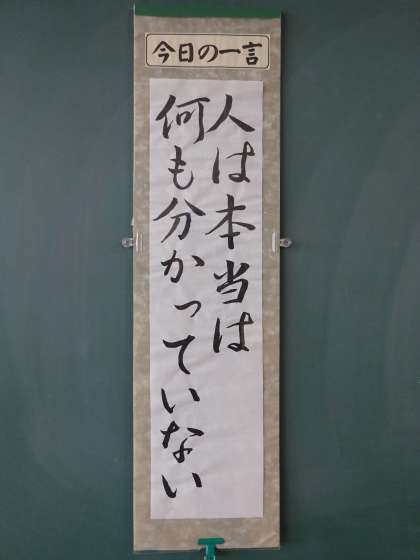 今日の一言
人は本当は
何も分かっていない